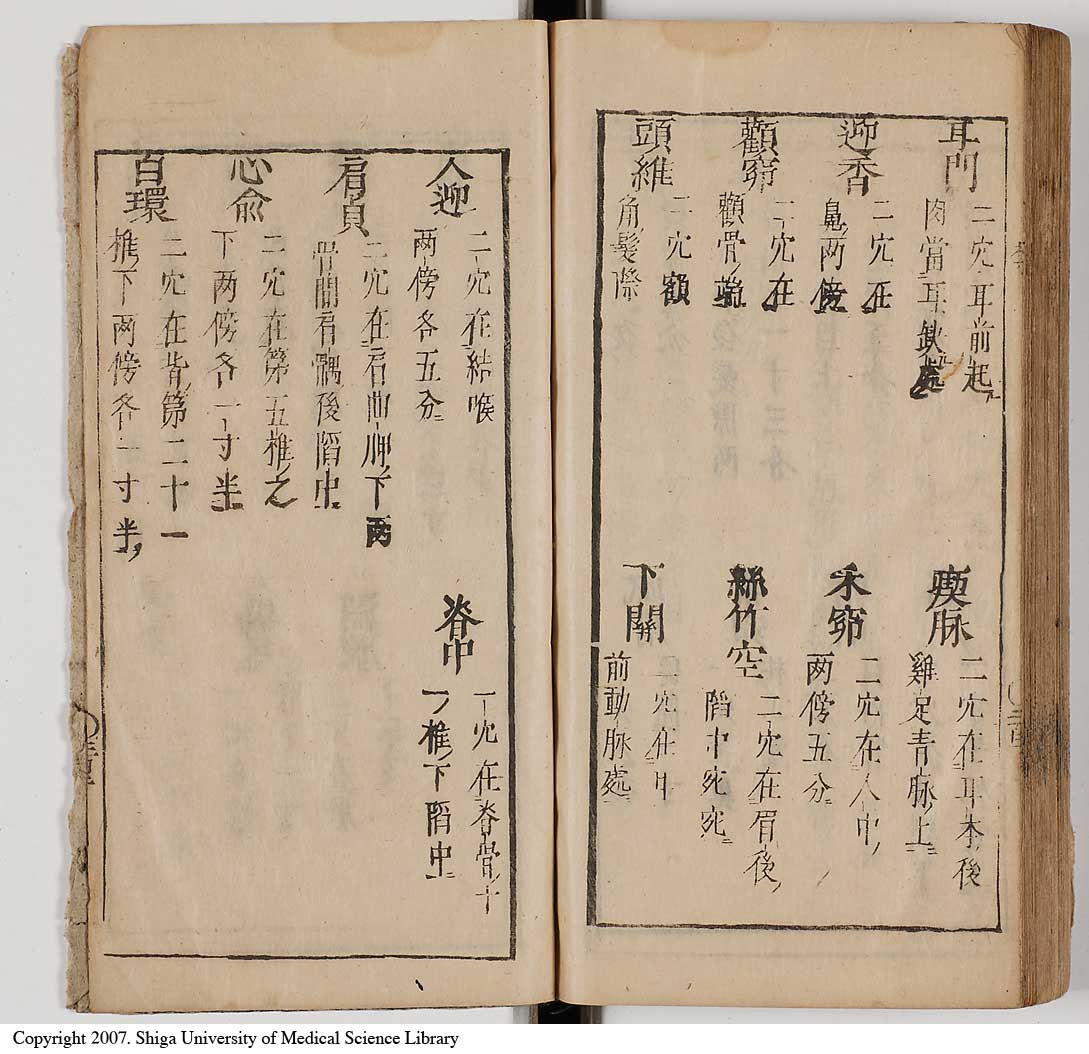 耳門
二穴耳前起
肉當耳缺處
瘈脉
二穴在耳本後
雞足青脉上
迎香
二穴在
鼻两傍
禾窌
二穴在人中
两傍五分
顴窌
二穴在
顴骨端
絲竹空
二穴在眉後
陷中宛宛
頭維
二穴額
角髪際
下關
二穴在耳
前動脉處
人迎
二穴在結喉
两傍各五分
脊中
一穴在脊骨十
一椎下陷中
肩貞
二穴在肩曲胛下两
骨間肩髃後陷中
心俞
二穴在第五椎之
下两傍各一寸半
百環
二穴在背第二十一
椎下两傍各一寸半
Copyright 2007. Shiga University of Medical Science Library